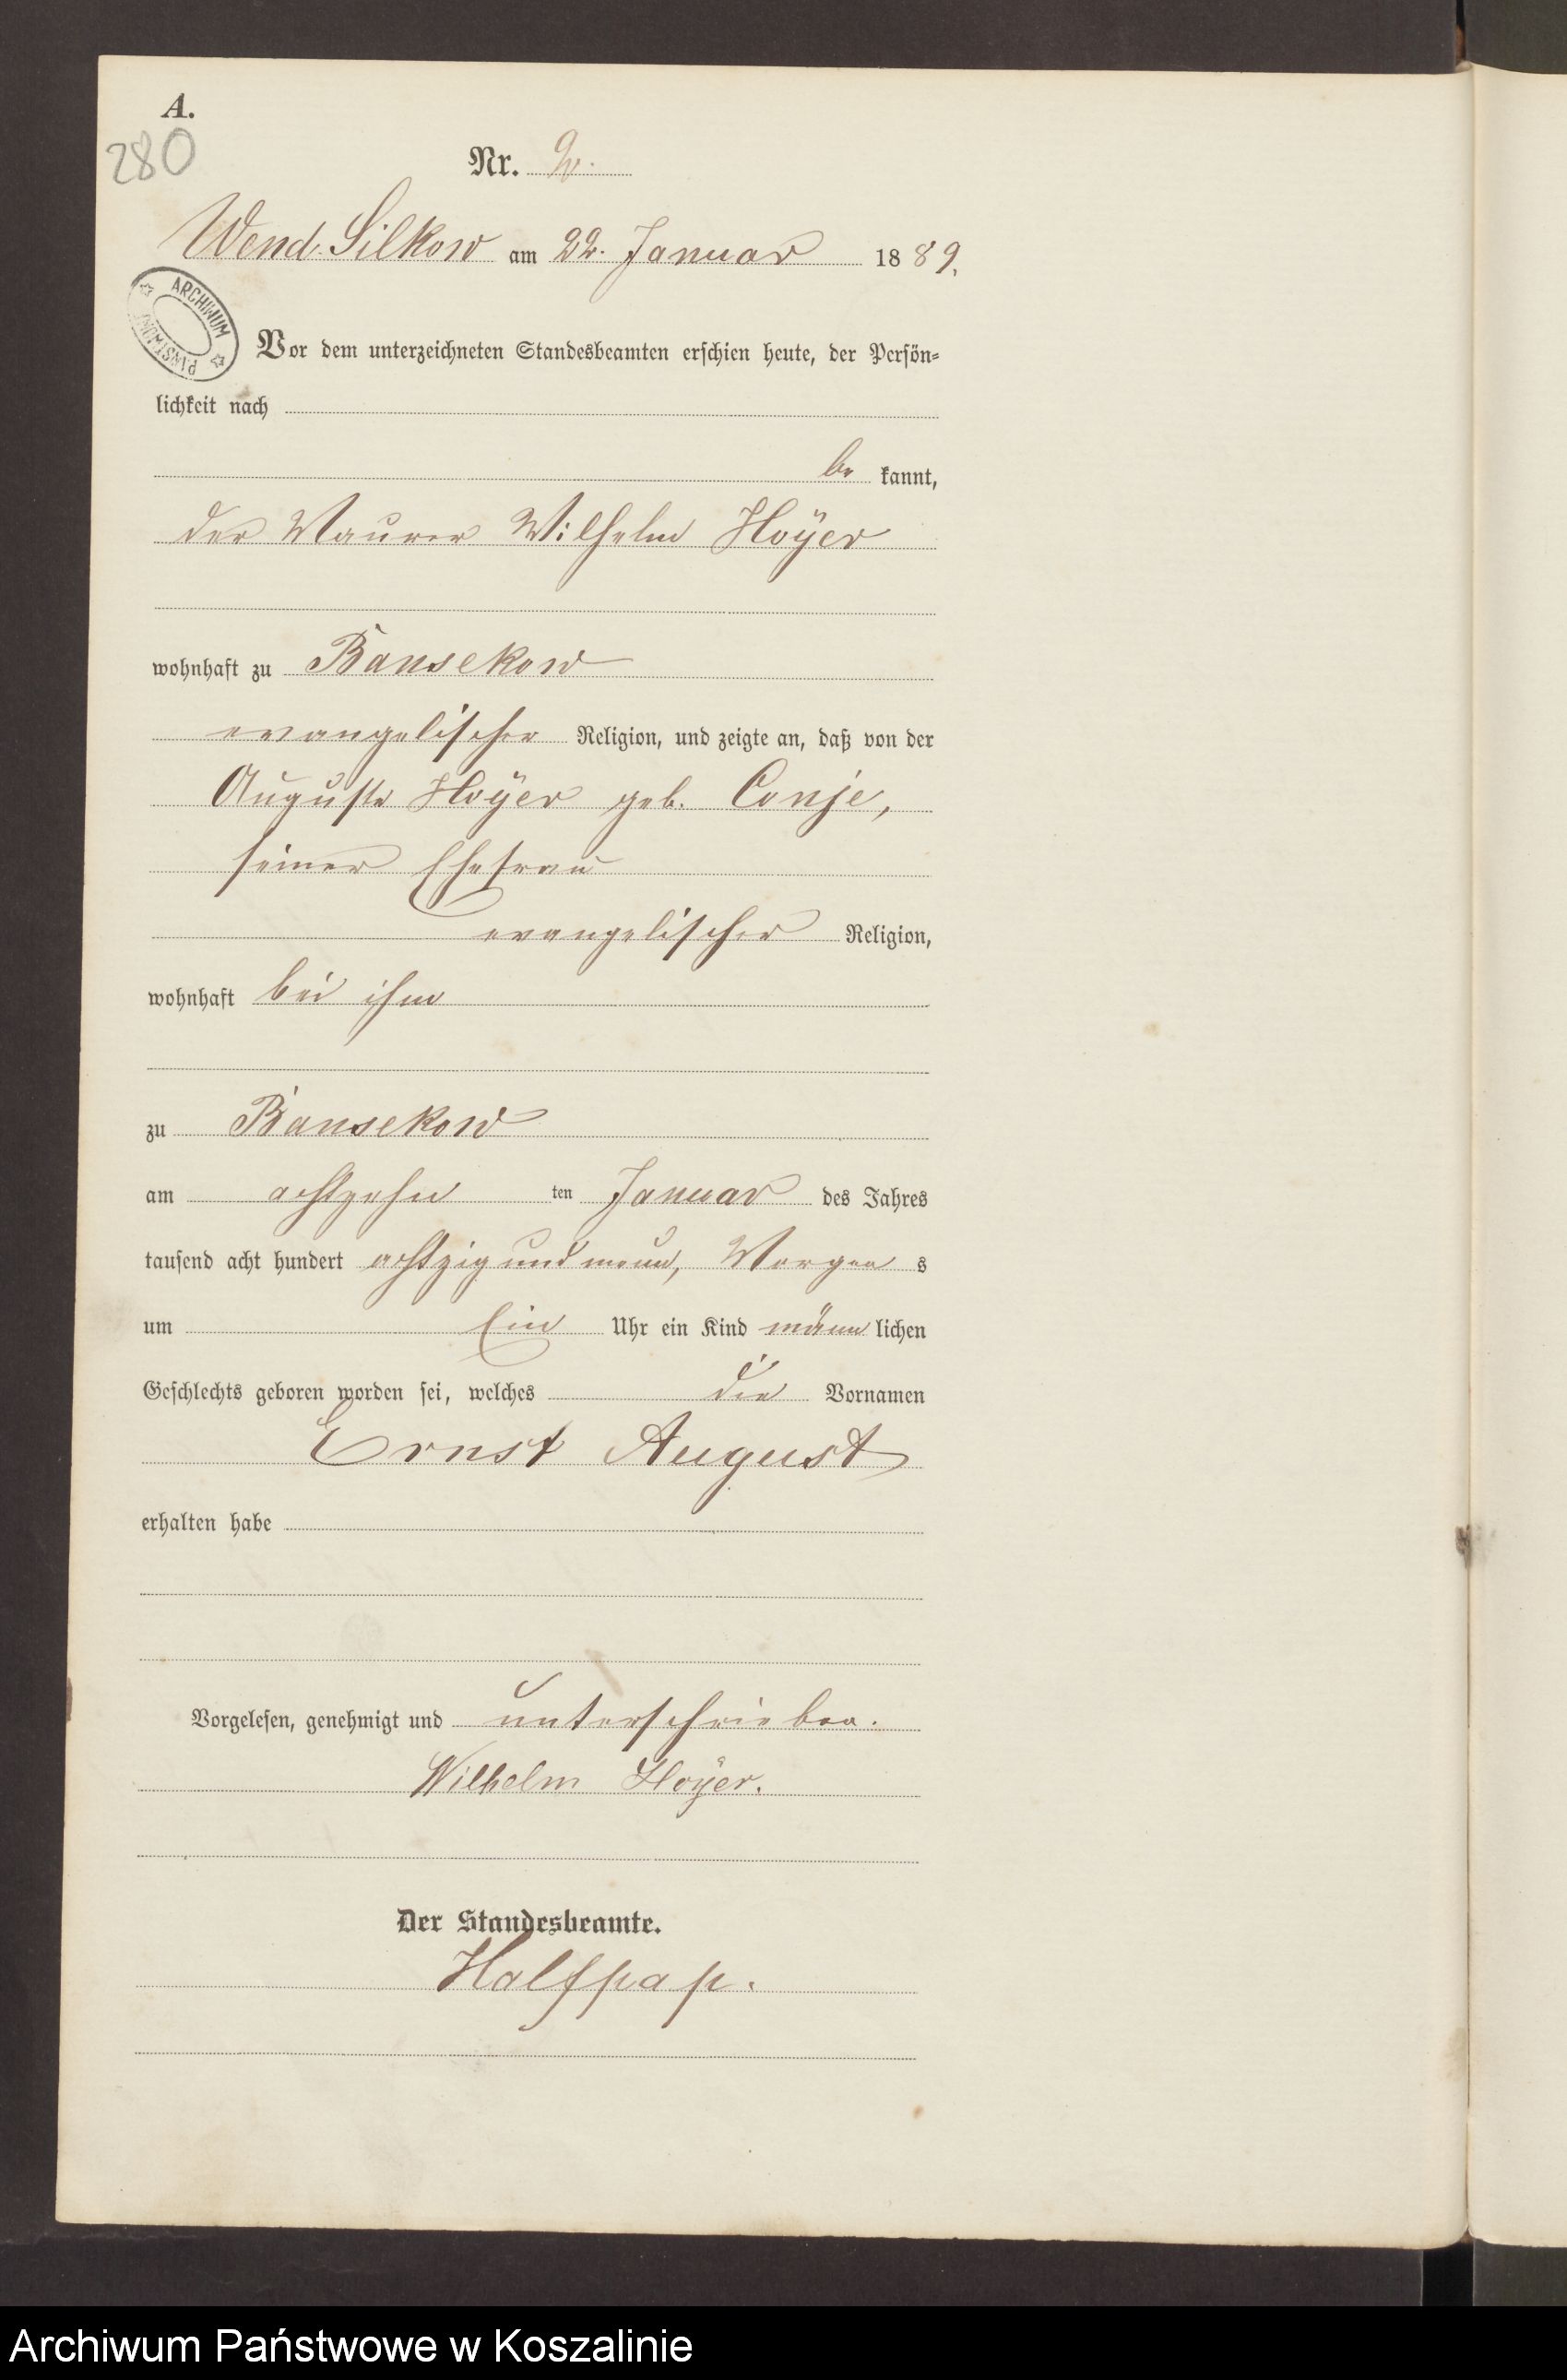 A.
280
Nr. 2.
Wend. Silkow am 22. Januar 1889.
ARCHIWUM PAŃSTWOWE
Vor dem unterzeichneten Standesbeamten erschien heute, der Persön-
lichkeit nach
be kannt,
der Maurer Wilhelm Hoÿer
wohnhaft zu Bansekow
evangelischer Religion, und zeigte an, daß von der
Auguste Hoÿer geb. Conje,
seiner Ehefrau
evangelischer Religion,
wohnhaft bei ihm
zu Bansekow
am achtzehn ten Januar des Jahres
tausend acht hundert achtzig und neun, Morgen s
um Ein Uhr ein Kind männ lichen
Geschlechts geboren worden sei, welches die Vornamen
Ernst August
erhalten habe
Vorgelesen, genehmigt und unterschrieben.
Wilhelm Hoÿer.
Der Standesbeamte.
Halfpap.
Archiwum Państwowe w Koszalinie